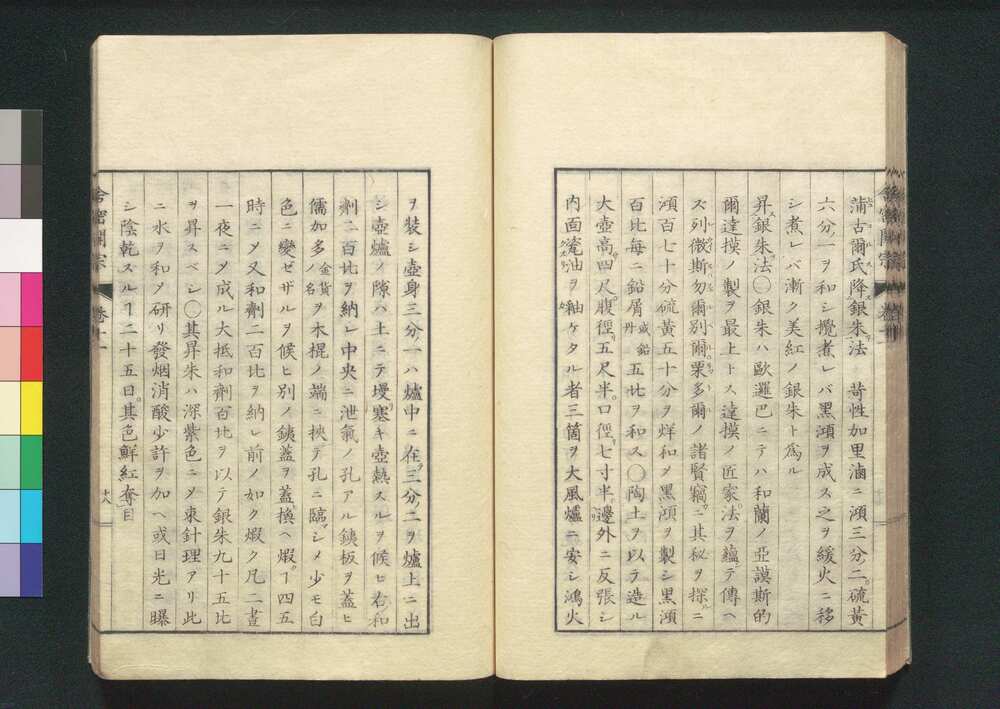 蒲古爾氏降銀朱法 苛性加里滷ニ澒三分二硫黄
六分一ヲ和シ攪煮レバ黒澒ヲ成ス之ヲ緩火ニ移
シ煮レバ漸ク美紅ノ銀朱ト為ル
昇銀朱法〇銀朱ハ歐邏巴ニテハ和蘭ノ亞謨斯的
爾達摸ノ製ヲ最上トス達摸ノ匠家法ヲ蘊テ傳ヘ
ス列微斯勿爾別爾栗多爾ノ諸賢竊ニ其秘ヲ探ルニ
澒百七十分硫黄五十分ヲ烊和メ黒澒ヲ製シ黒澒
百比每ニ鉛屑或鉛丹五比ヲ和ス〇陶土ヲ以テ造ル
大壺高四尺腹徑五尺半口徑七寸半邊外ニ反張シ
内面瓷油ヲ釉ケタル者三箇ヲ大風爐ニ安シ鴻火
ヲ装シ壺身三分一ハ爐中ニ在三分二ヲ爐上ニ出
シ壺爐ノ隙ハ土ニテ墁塞キ壺熱スルヲ候ヒ右ノ和
劑二百比ヲ納レ中央ニ泄氣ノ孔アル鉄板ヲ蓋ヒ
儒加多金貨ノ名ヲ木棍ノ端ニ挾テ孔ニ臨マシメ少モ白
色ニ變ゼザルヲ候ヒ別ノ鉄蓋ヲ蓋換ヘ煆ヿ四五
時ニメ又和劑二百比ヲ納レ前ノ如ク煆ク凡二晝
一夜ニメ成ル大抵和劑百比ヲ以テ銀朱九十五比
ヲ昇スベシ〇其昇朱ハ深紫色ニメ束針理アリ此
ニ水ヲ和メ研リ發烟消酸少許ヲ加ヘ或日光ニ曝
シ陰乾スルヿ二十五日其色鮮紅奪目
舎密開宗 卷十一
十八